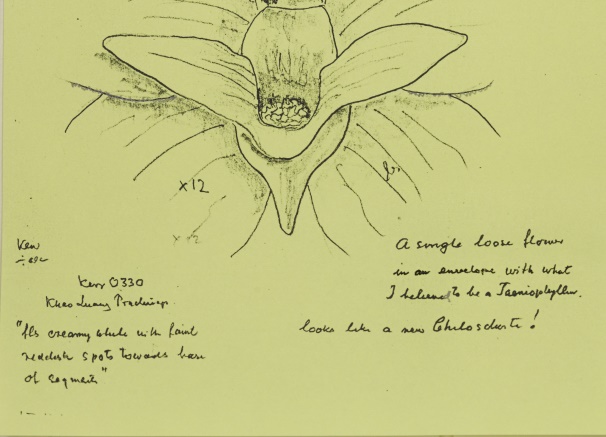 x12
b.
x12
Kew
Kerr 0330
Khao Luang
"Fls creamy white with faint
reddish spots towards base
of segments"
A single loose flower
in an envelope with what
I believed to be a Taeniophyllum.
looks like a new Chiloschista!